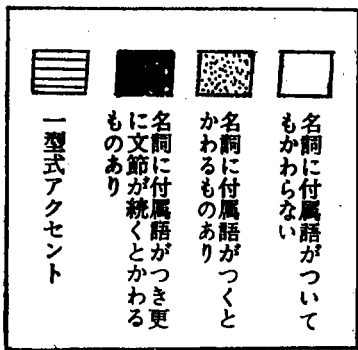 名詞に付属語がついて
もかわらない
名詞に付属語がつくと
かわるものあり
名詞に付属語がつき更
に文節が続くとかわる
ものあり
一型式アクセント